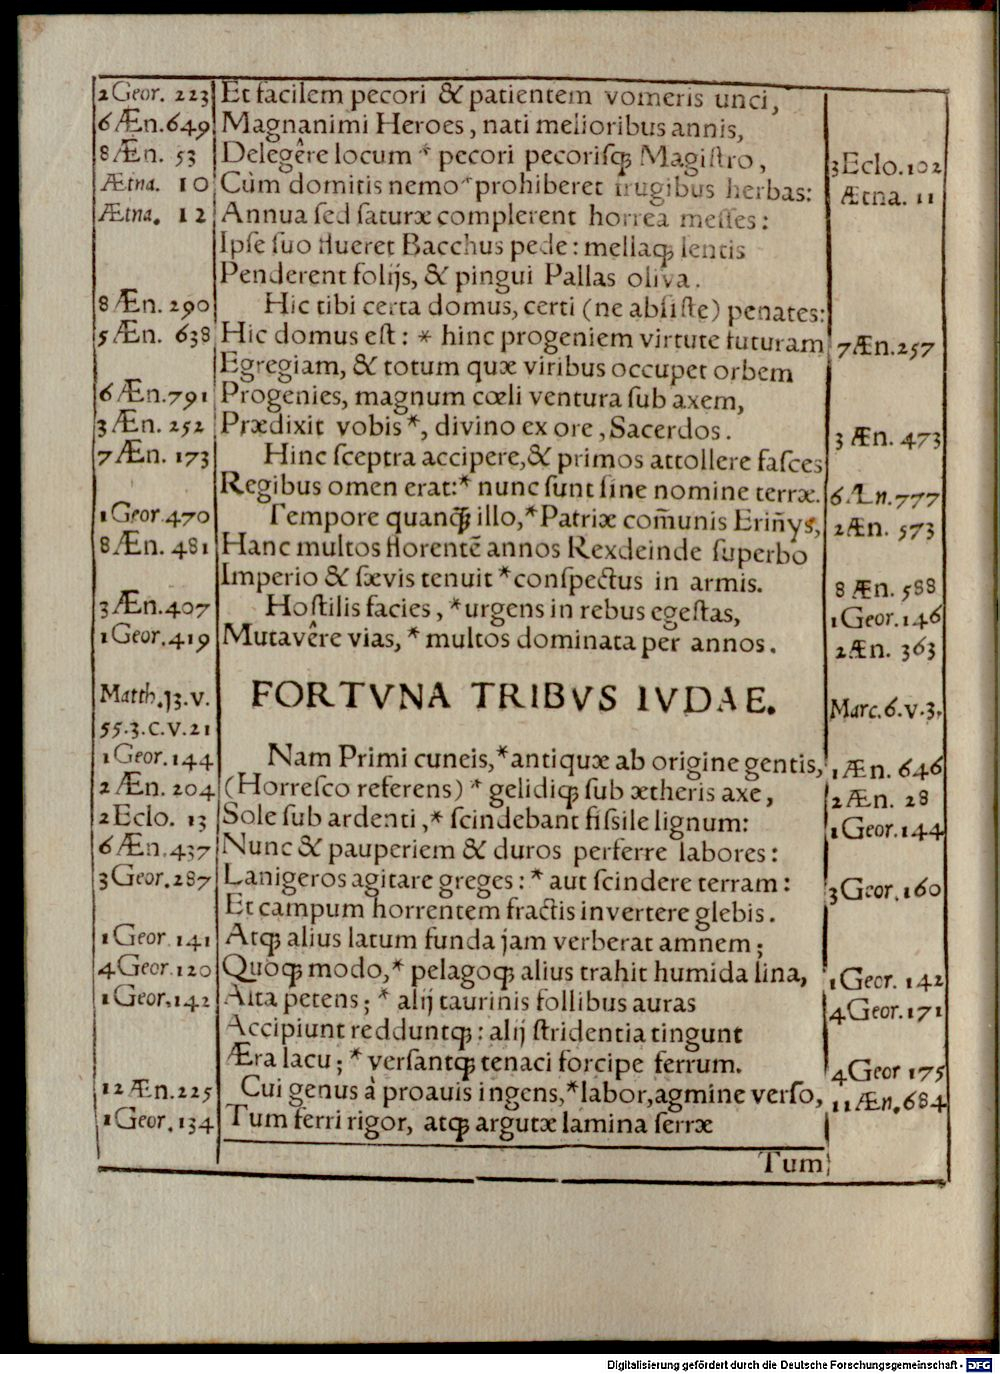 2 Geor. 223 Et facilem pecori & patientem vomeris unci,
6 Æn. 649 Magnanimi Heroes, nati melioribus annis,
8 Æn. 53 Delegêre locum * pecori pecorisq; Magistro, 3 Eclo. 102
Ætna. 10 Cùm domitis nemo * prohiberet frugibus herbas: Ætna. 11
Ætna. 12 Annua sed saturæ complerent horrea messes:
Ipse suo flueret Bacchus pede: mellaq; lentis
Penderent folijs, & pingui Pallas oliva.
8 Æn. 290 Hic tibi certa domus, certi (ne absiste) penates:
5 Æn. 638 Hic domus est: * hinc progeniem virtute futuram 7 Æn. 257
Egregiam, & totum quæ viribus occupet orbem
6 Æn. 791 Progenies, magnum cœli ventura sub axem,
3 Æn. 252 Prædixit vobis *, divino ex ore, Sacerdos. 3 Æn. 473
7 Æn. 173 Hinc sceptra accipere, & primos attollere fasces
Regibus omen erat: * nunc sunt sine nomine terræ. 6 Æn. 777
1 Geor. 470 Tempore quanq̃ illo, * Patriæ com̃unis Erin̄ys, 2 Æn. 573
8 Æn. 481 Hanc multos florentẽ annos Rex deinde superbo
Imperio & sævis tenuit * conspectus in armis. 8 Æn. 588
3 Æn. 407 Hostilis facies, * urgens in rebus egestas, 1 Geor. 146
1 Geor. 419 Mutavêre vias, * multos dominata per annos. 2 Æn. 363
Matth. 13. v. FORTVNA TRIBVS IVDAE. Marc. 6. v. 3.
55. 3. c. v. 21
1 Geor. 144 Nam Primi cuneis, * antiquæ ab origine gentis, 1 Æn. 646
2 Æn. 204 (Horresco referens) * gelidiq; sub ætheris axe, 2 Æn. 28
2 Eclo. 13 Sole sub ardenti, * scindebant fissile lignum: 1 Geor. 144
6 Æn. 437 Nunc & pauperiem & duros perferre labores:
3 Geor. 287 Lanigeros agitare greges: * aut scindere terram: 3 Geor. 160
Et campum horrentem fractis invertere glebis.
1 Geor. 141 Atq; alius latum funda jam verberat amnem;
4 Geor. 120 Quoq; modo, * pelagoq; alius trahit humida lina, 1 Geor. 142
1 Geor. 142 Alta petens; * alij taurinis follibus auras 4 Geor. 171
Accipiunt redduntq;: alij stridentia tingunt
Æra lacu; * versantq; tenaci forcipe ferrum. 4 Geor 175
12 Æn. 225 Cui genus à proavis ingens, * labor, agmine verso, 11 Æn. 684
1 Geor. 134 Tum ferri rigor, atq; argutæ lamina serræ
Tum
Digitalisierung gefördert durch die Deutsche Forschungsgemeinschaft - DFG